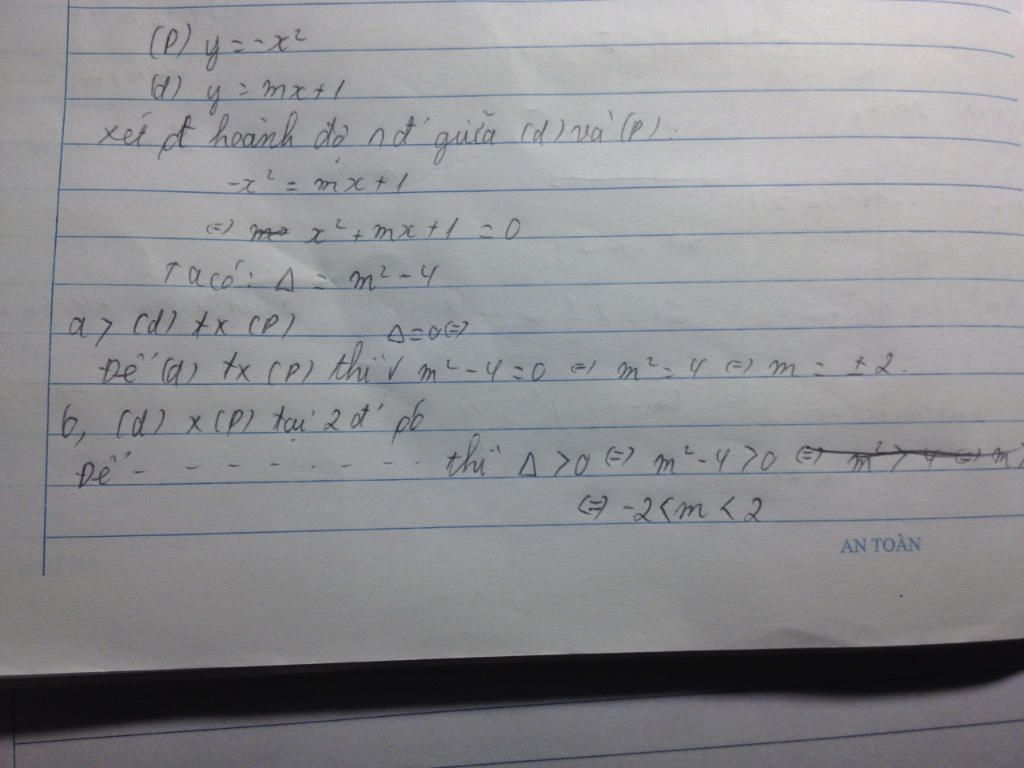 (P) y = -x²
(d) y = mx+1
xét pt hoành độ nđ' giữa (d) và (P).
-x² = mx+1
⇔ x² + mx + 1 = 0
Ta có: Δ = m² - 4
a> (d) tx (P)
Δ=0 ⇔
Để (d) tx (P) thì √ m² - 4 = 0 ⇔ m² = 4 ⇔ m = ±2.
b, (d) x (P) tại 2 đ' pb
Để - - - - - - - - thì Δ > 0 ⇔ m² - 4 > 0 ⇔ m² > 4 ⇔ m >
⇔ -2 < m < 2
AN TOÀN